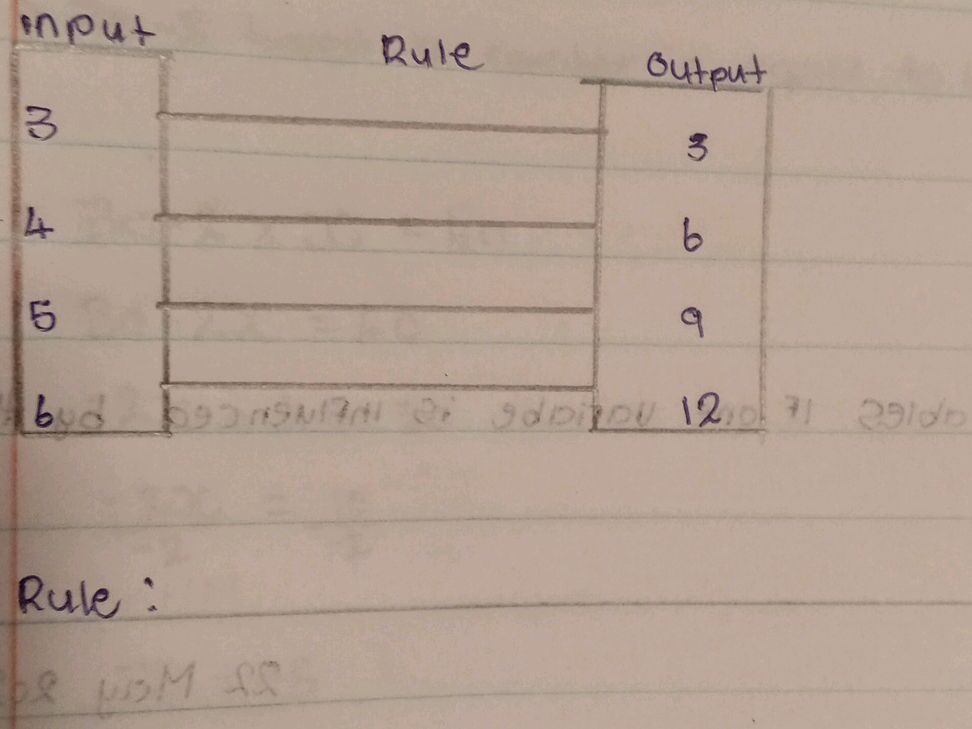 Input Rule Output
3 3
4 6
5 9
6 12
Rule :